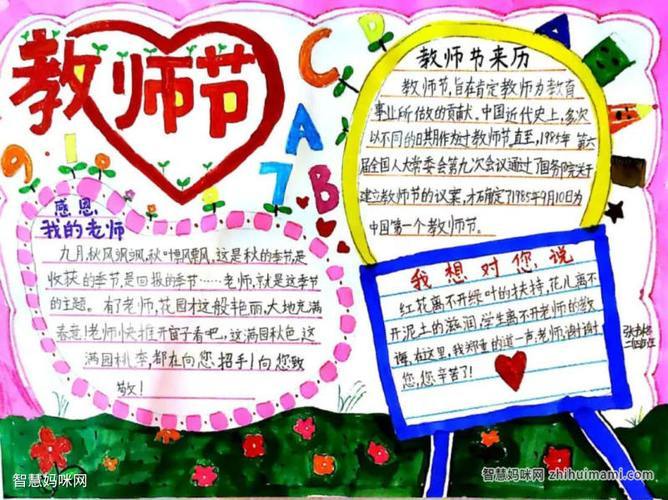 教师节
C
D
A
A
B
9 1 0
7
教师节来历
教师节,旨在肯定教师为教育
事业所做的贡献。中国近代史上,多次
以不同的日期作为过教师节。直至,1985年 第六
届全国人大常委会第九次会议通过了国务院关于
建立教师节的议案,才确定了1985年9月10日为
中国第一个教师节。
感恩
我的老师
九月,秋风飒飒,秋叶飘飘,这是秋的季节,是
收获的季节,是回报的季节……老师,就是这季节
的主题。有了老师,花园才这般艳丽,大地充满
春意!老师快推开窗子看吧,这满园秋色,这
满园桃李,都在向您招手!向您致
敬!
我想对您说
红花离不开绿叶的扶持,花儿离不
开泥土的滋润,学生离不开老师的教
诲,在这里,我郑重的道一声,老师,谢谢
您,您辛苦了!
智慧妈咪网
智慧妈咪网 zhihuimami.com